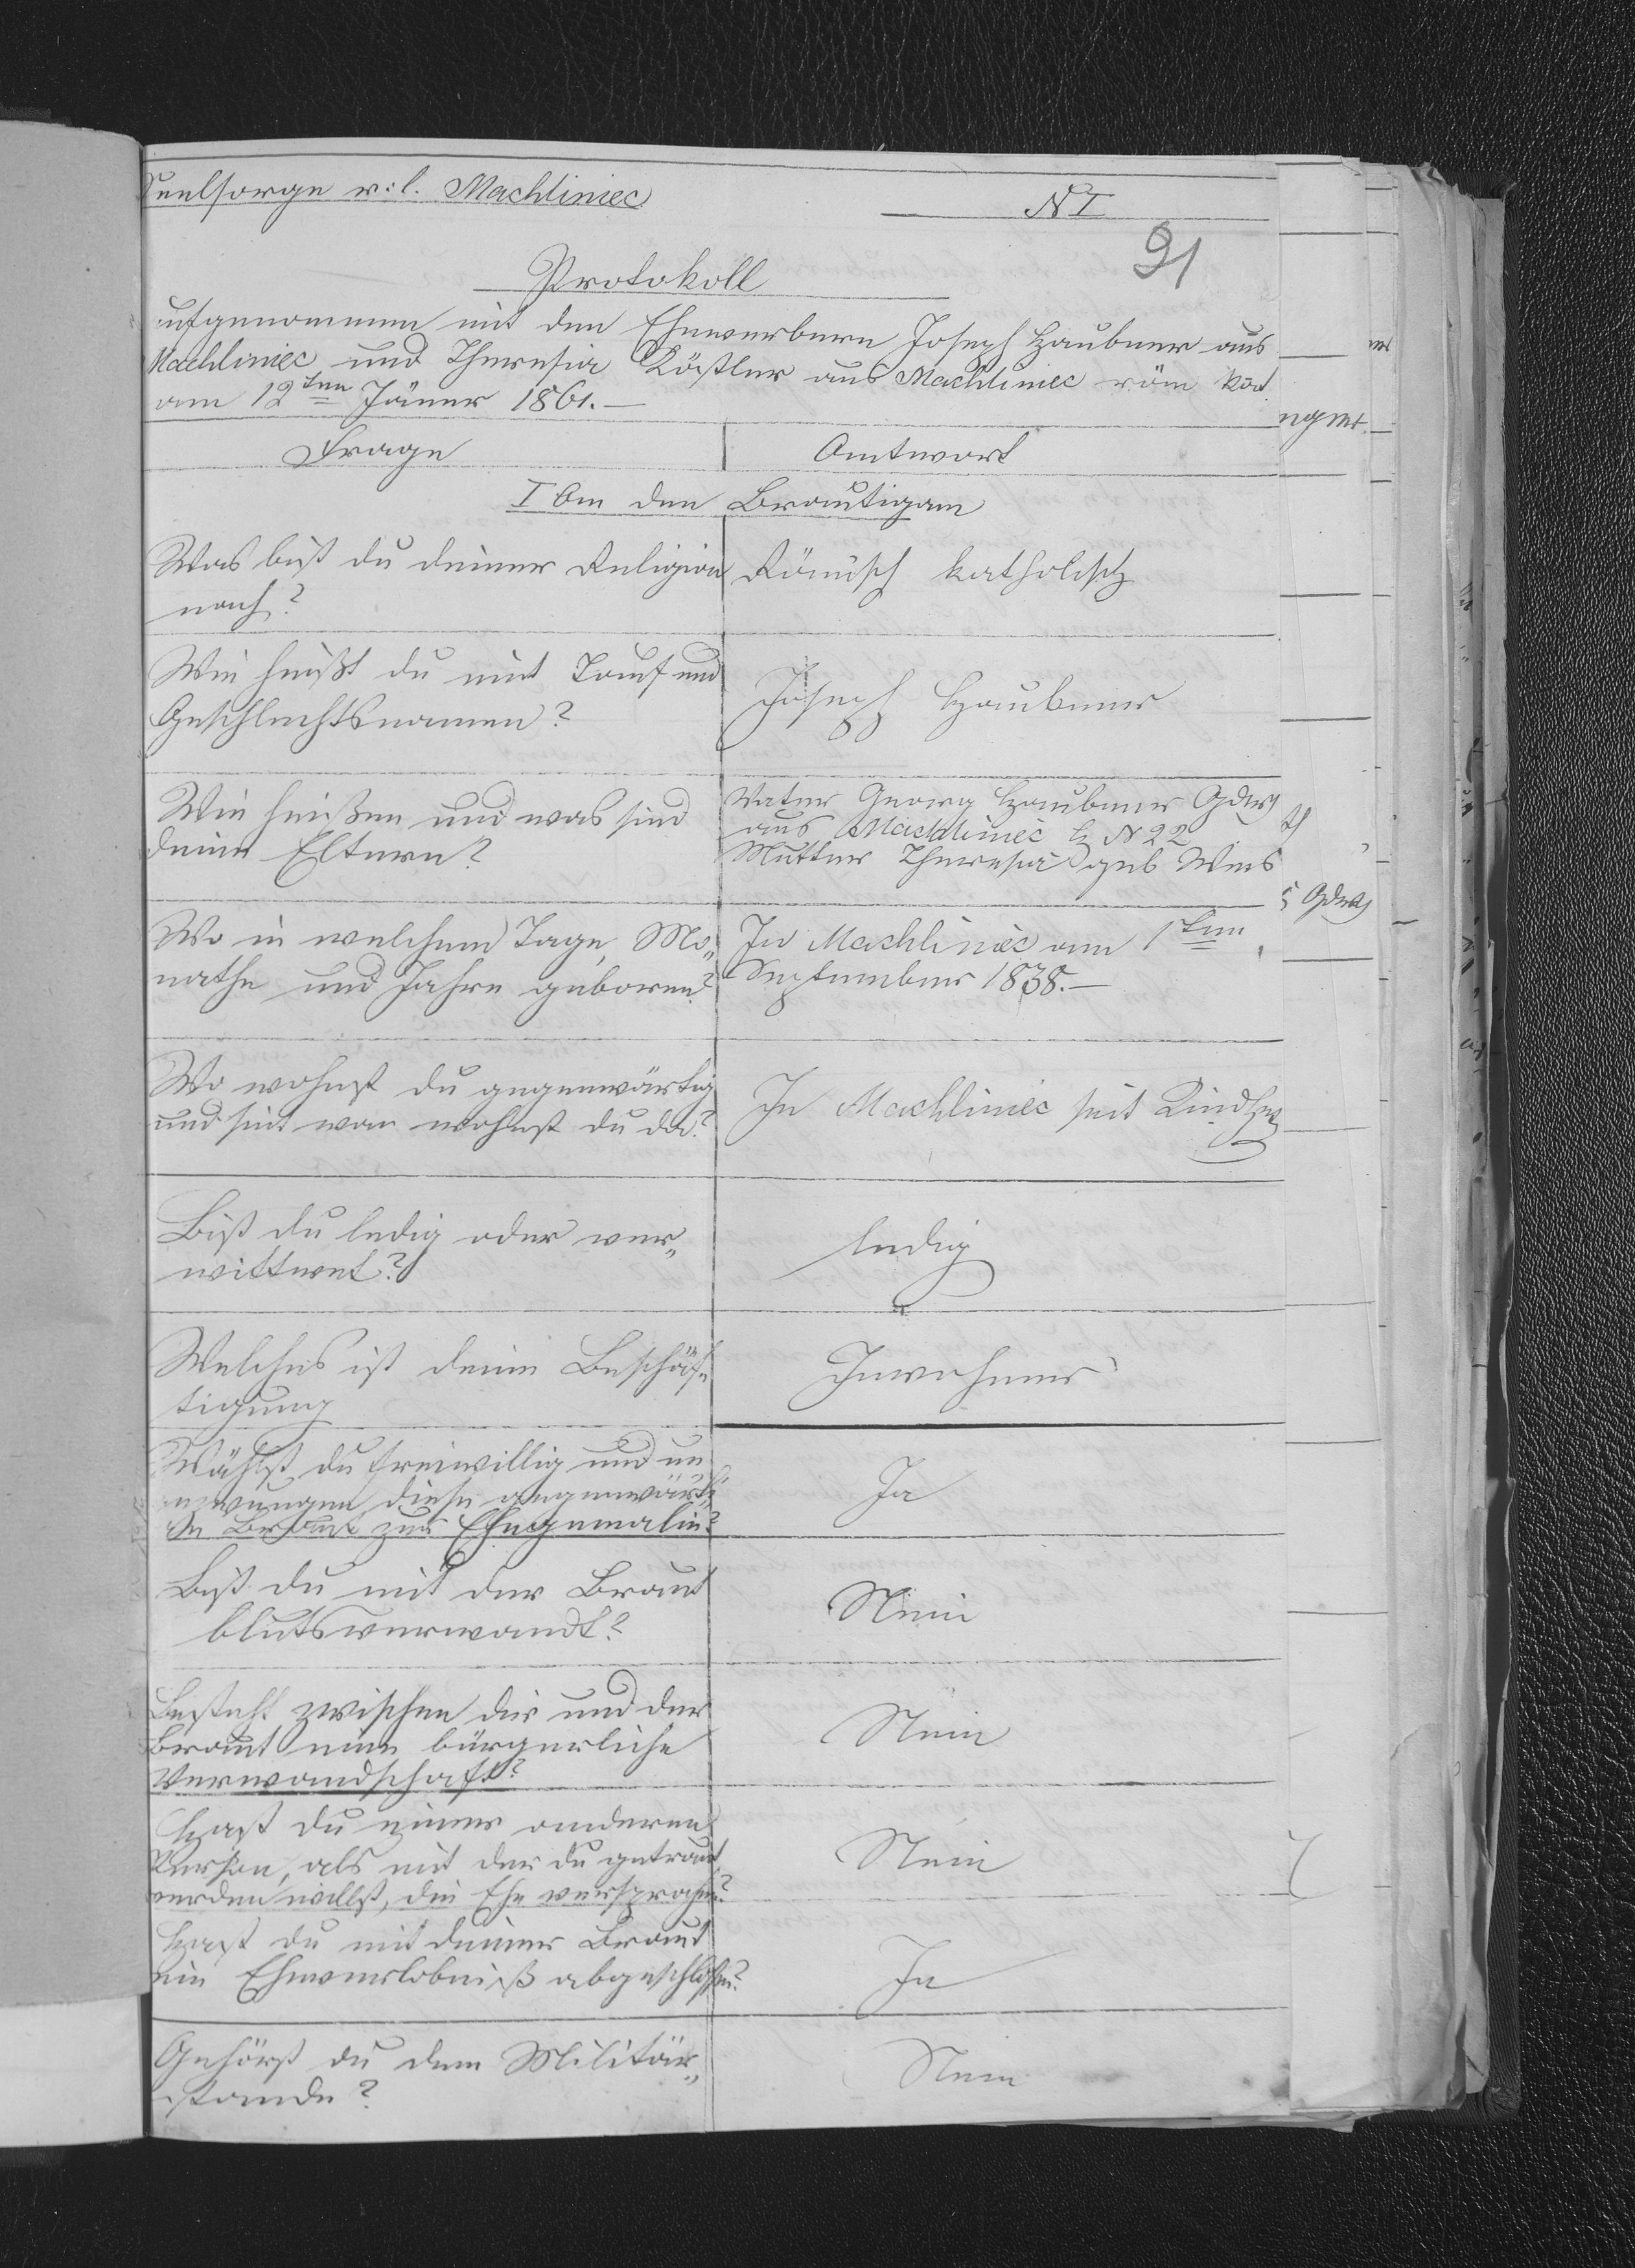 Seelsorge r: l. Machliniec
N I
91
Protokoll
ufgenommen mit den Ehewerbern Joseph Haubner aus
Machliniec und Theresia Köstler aus Machliniec röm kat
am 12ten Jäner 1861.—
Frage
Antwort
I An den Bräutigam
Was bist du deiner Religion
nach?
Römisch katholisch
Wie heißt du mit Tauf und
Geschlechtsnamen?
Joseph Haubner
Wie heißen und was sind
deine Eltern?
Vater Georg Haubner
aus Machliniec h N 22
Mutter Theresia geb Weis
Wo in welchem Tage, Mo„
nathe und Jahre geboren?
In Machliniec am 1ten
September 1838.—
Wo wohnst du gegenwärtig
und seit wan wohnst du da?
In Machliniec seit Kindhei
Bist du ledig oder ver„
wittwet?
ledig
Welches ist deine Beschäf„
tigung
Inwohner
Wählst du freiwillig und un
zwungen diese gegenwärti„
ge Braut zur Ehegemalin?
Ja
Bist du mit der Braut
blutsverwandt?
Nein
Besteht zwischen dir und der
Braut eine bürgerliche
Verwandschaft?
Nein
Hast du einer anderen
Person, als mit der du getraut
werden willst, die Ehe versprochen?
Nein
Hast du mit deiner Braut
ein Eheverlobniß abgeschlossen?
Ja
Gehörst du dem Militär„
stande?
Nein